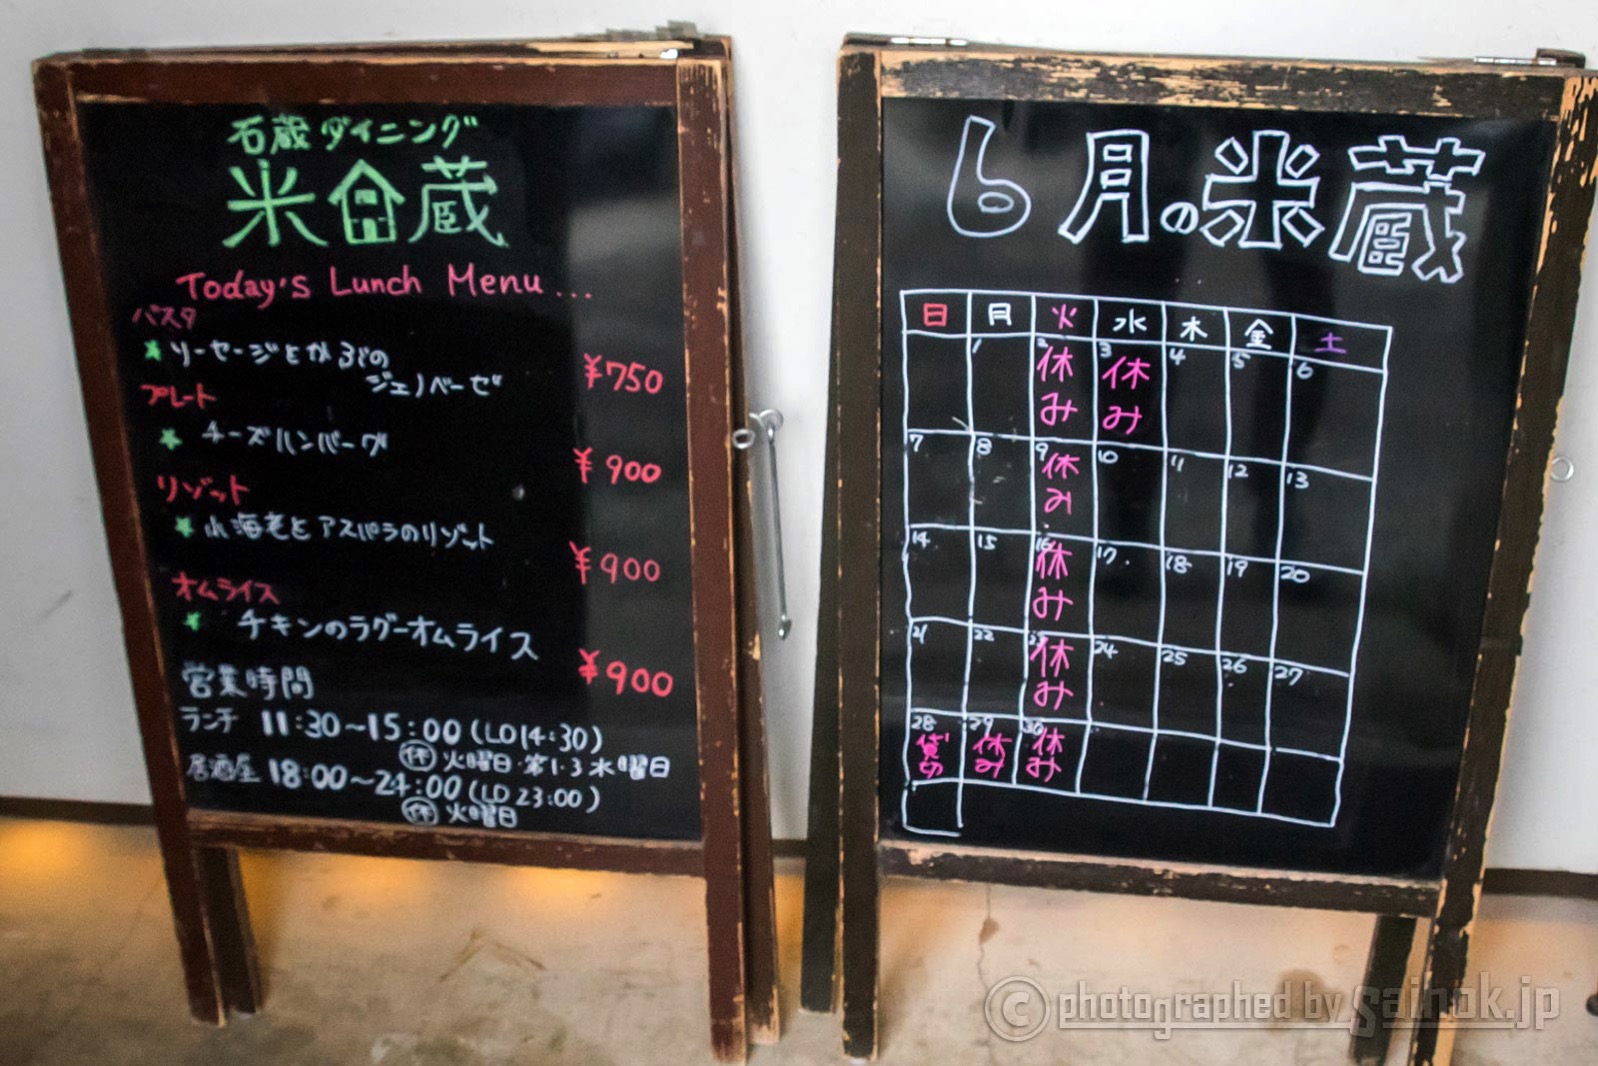 石蔵ダイニング
米蔵
Today's Lunch Menu...
パスタ
ソーセージとかぶの
ジェノベーゼ ¥750
プレート
チーズハンバーグ ¥900
リゾット
小海老とアスパラのリゾット ¥900
オムライス
チキンのラグーオムライス ¥900
営業時間
ランチ 11:30〜15:00(LO14:30)
休 火曜日・第1・3水曜日
居酒屋 18:00〜24:00(LO 23:00)
休 火曜日
6月の米蔵
日 月 火 水 木 金 土
1 2 休み 3 休み 4 5 6
7 8 9 休み 10 11 12 13
14 15 16 休み 17 18 19 20
21 22 23 休み 24 25 26 27
28 貸切 29 休み 30 休み
© photographed by sainok.jp